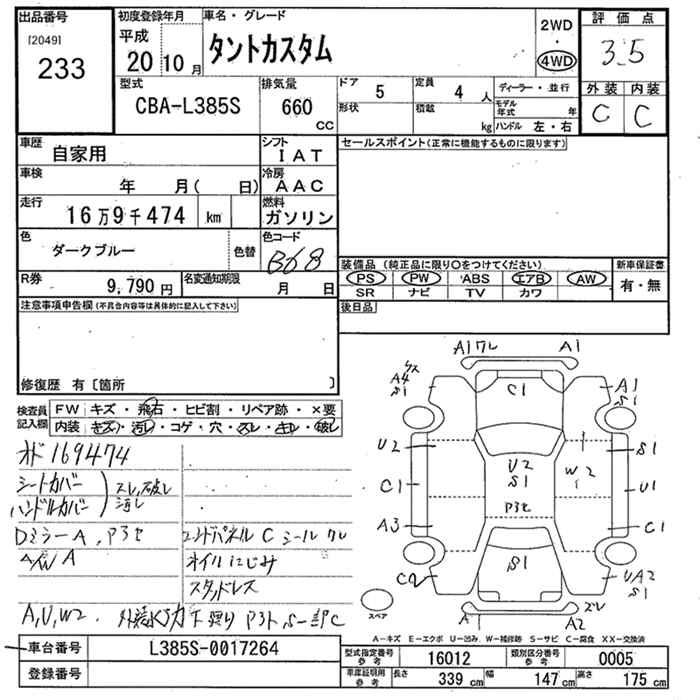 出品番号
[2049]
233
初度登録年月
平成
20 10 月
車名・グレード
タントカスタム
2WD
4WD
評価点
3.5
外装 内装
C C
型式
CBA-L385S
排気量
660 CC
ドア 5
形状
定員 4 人
積載 kg
ディーラー・並行
モデル年式 年
ハンドル 左・右
車歴
自家用
シフト
IAT
セールスポイント(正常に機能するものに限ります)
車検
年 月( 日)
冷房
AAC
走行
16万9千474 km
燃料
ガソリン
色
ダークブルー
色替
色コード
B68
装備品(純正品に限り○をつけてください)
PS PW ABS エアB AW
SR ナビ TV カワ
新車保証書
有・無
R券
9,790円
名変通知期限
月 日
後日品
注意事項申告欄(不具合内容等は具体的に記入して下さい)
修復歴 有〔箇所 〕
検査員記入欄
FW キズ・飛石・ヒビ割・リペア跡・×要
内装 キズ・汚レ・コゲ・穴・スレ・キレ・破レ
オド 169474
シートカバー
ハンドルカバー
スレ、破レ
汚レ
Dミラー A、アヲセ
エンドパネル C シール ワレ
AW A
オイルにじみ
スタッドレス
A,U,W2.
A1ワレ A1
A4 S1
C1
A1 S1
U2
U2 S1
W2
S1
C1
U1
アヲセ
A3
C1
C2
S1
UA2 S1
スペア
A
A2
ズレ
A-キズ E-エクボ U-凹み W-補修跡 S-サビ C-腐食 XX-交換済
車台番号
L385S-0017264
登録番号
型式指定番号 参考
16012
類別区分番号 参考
0005
車庫証明用 参考
長さ 339 cm
幅 147 cm
高さ 175 cm